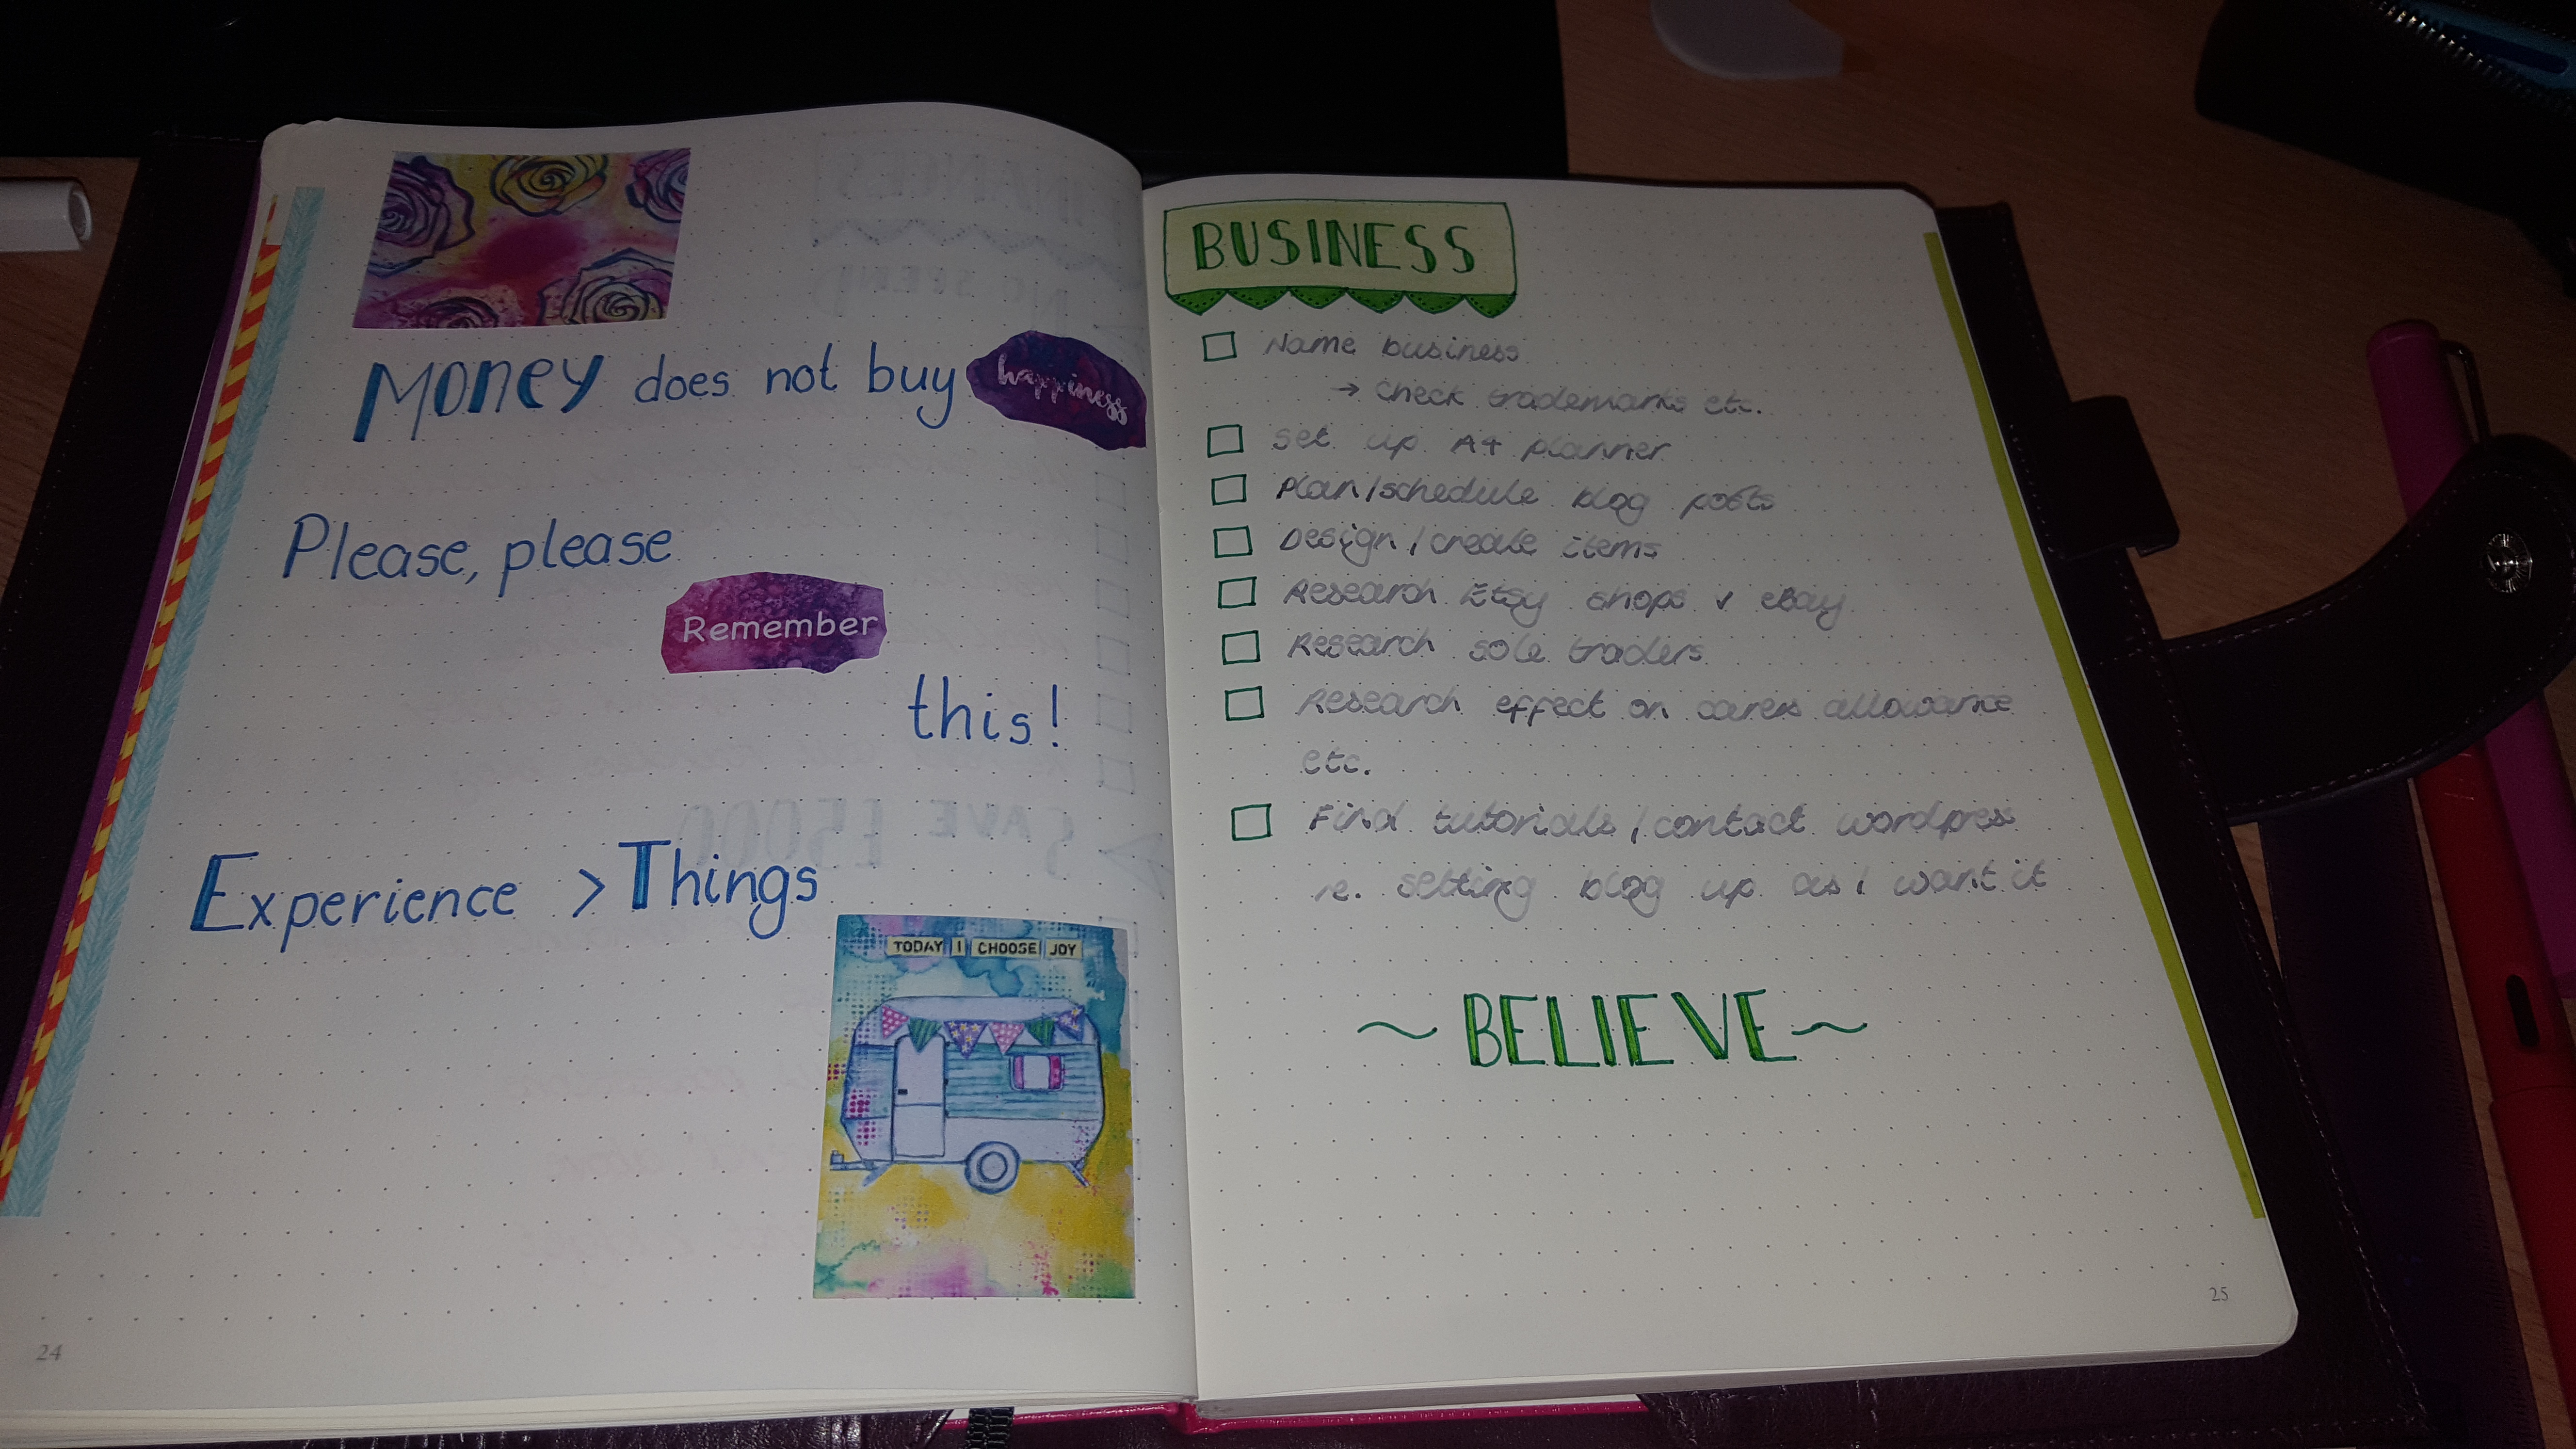 Money does not buy happiness
Please, please
Remember
this!
Experience > Things
TODAY I CHOOSE JOY
24
BUSINESS
Name business
→ check trademarks etc.
Set up A4 planner
Plan/schedule blog posts
Design/create items
Research Etsy shops v eBay
Research sole traders
Research effect on carers allowance
etc.
Find tutorials/contact wordpress
re. setting blog up as I want it
~ BELIEVE ~
25